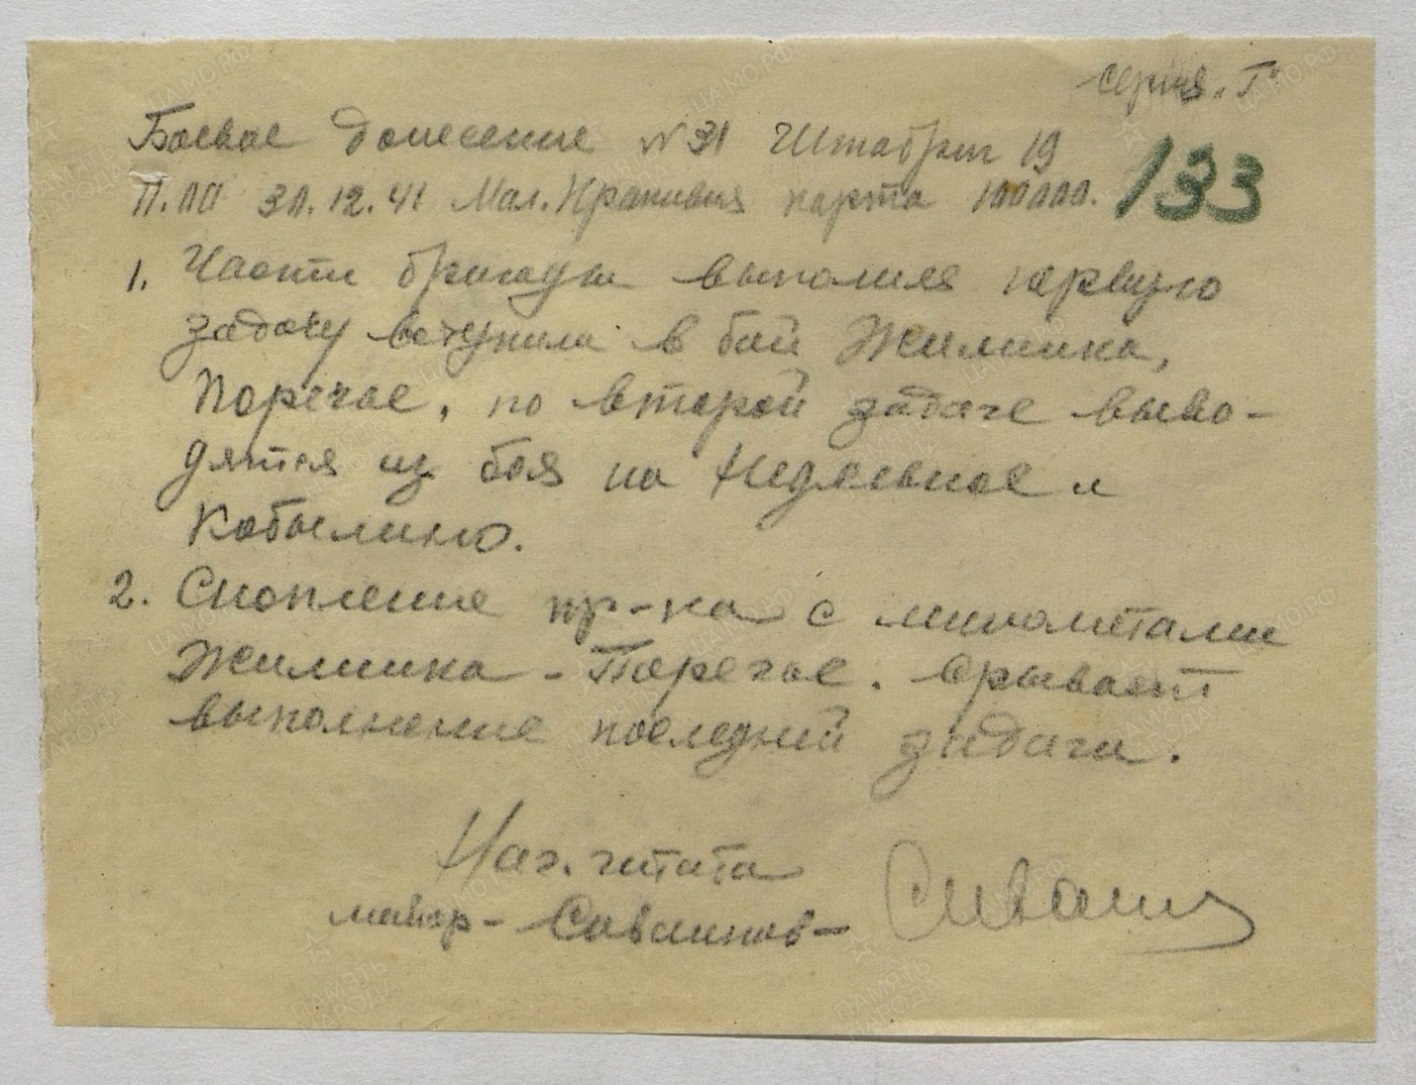 серия "Г"
Боевое донесение № 31 Штабриг 19
133
11.00 30.12.41 Мал. Крапивня карта 100000.
1. Части бригады выполняя первую
задачу вступили в бой Жилинка,
Поречье, по второй задаче выво-
дятся из боя на Недельное и
Кобылино.
2. Скопление пр-ка с минометами
Жилинка - Поречье. Срывает
выполнение последней задачи.
Нач. штаба
майор -